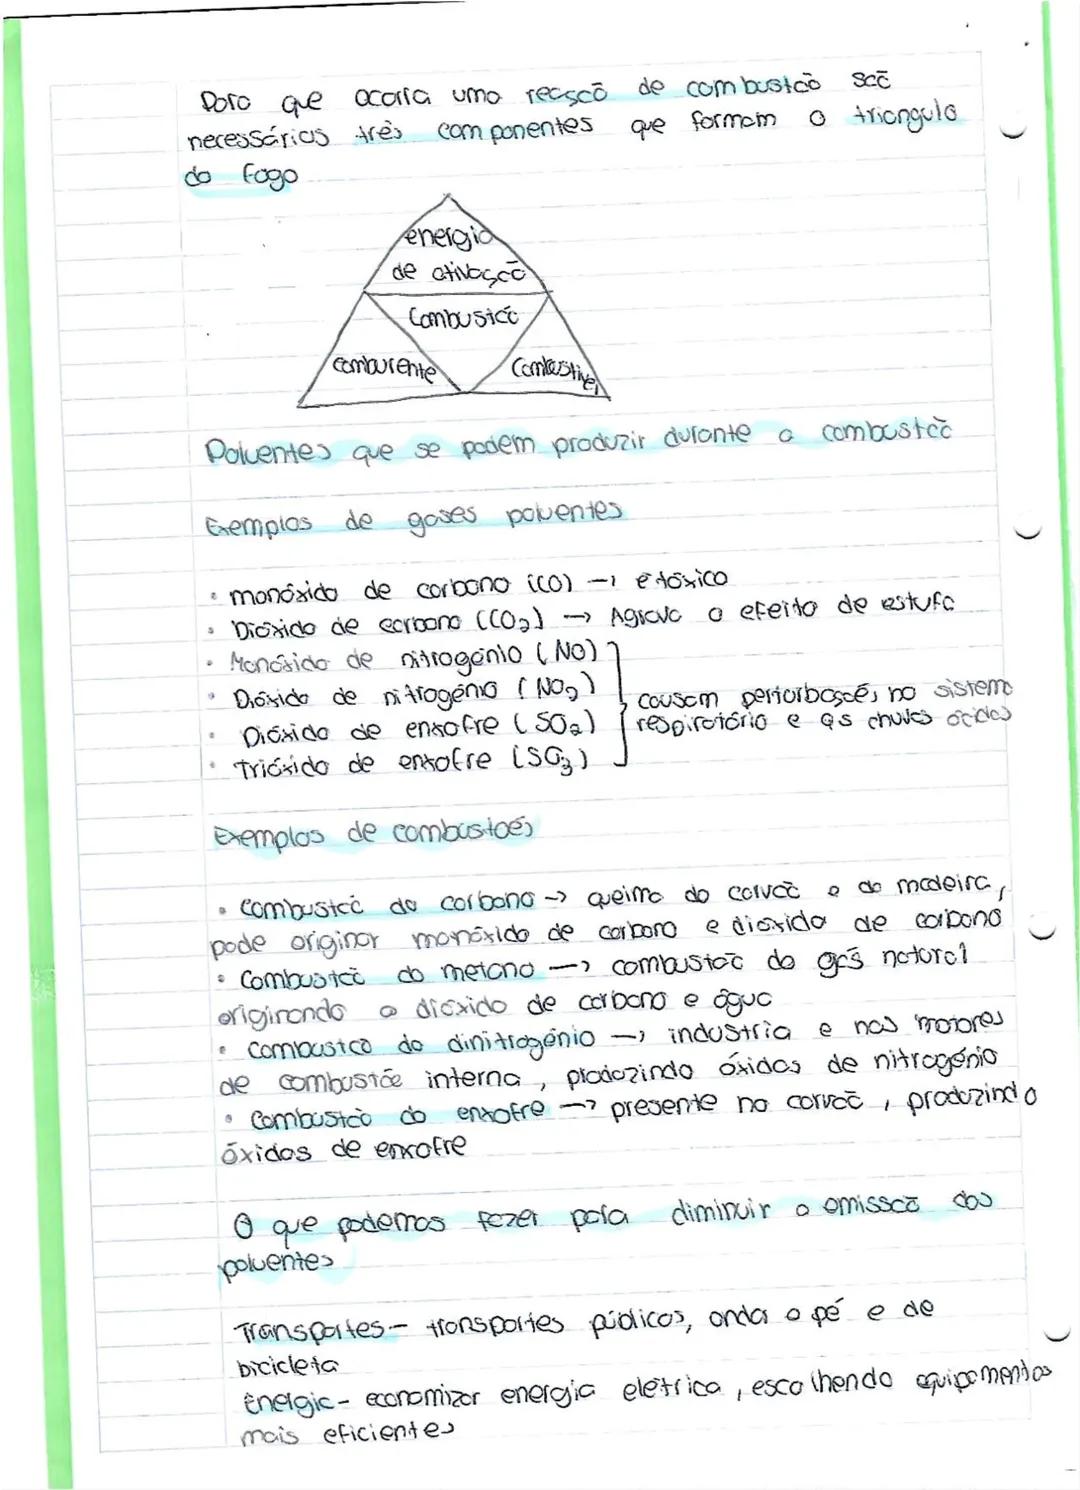 Para que ocorra uma reação de combustão são
necessários três componentes que formam o triangulo
do fogo
energia
de ativação
Combustão
comburente
Combustivel
Poluentes que se podem produzir durante a combustão
Exemplos de gases poluentes
• monóxido de carbono (CO) → é tóxico
• Dióxido de carbono (CO₂) → Agrava o efeito de estufa
• Monóxido de nitrogénio (NO)
• Dióxido de nitrogénio (NO₂)
causam perturbações no sistema
• Dióxido de enxofre (SO₂)
respiratório e as chuvas ácidas
• Trióxido de enxofre (SO₃)
Exemplos de combustões
• Combustão do carbono → queima do carvão e da madeira,
pode originar monóxido de carbono e dioxido de carbono
• Combustão do metano → combustão do gás natural
originando o dióxido de carbono e água
• Combustão do dinitrogénio → industria e nos motores
de combustão interna, produzindo óxidos de nitrogénio
• Combustão do enxofre → presente no carvão, produzindo
óxidos de enxofre
O que podemos fazer para diminuir a emissão dos
poluentes
Transportes - transportes públicos, andar a pé e de
bicicleta
Energia - economizar energia elétrica, escolhendo equipamentos
mais eficientes